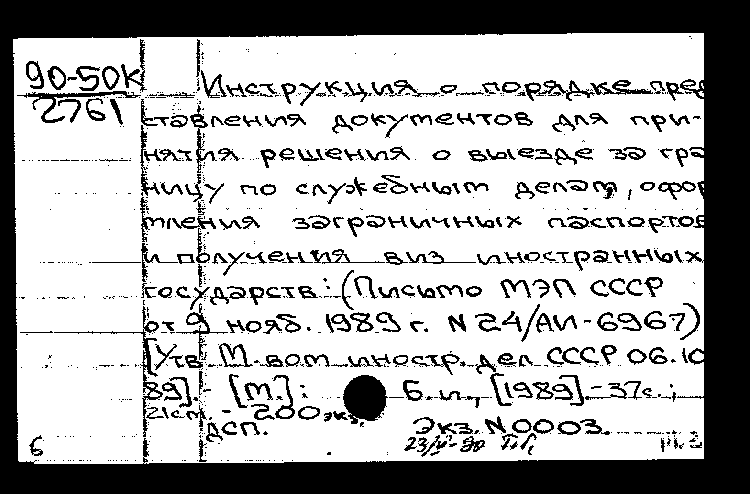 90-50К
2761
Инструкция о порядке пред
ставления документов для при-
нятия решения о выезде за гра
ницу по служебным делам, офор
мления заграничных паспортов
и получения виз иностранных
государств: (Письмо МЭП СССР
от 9 нояб. 1989 г. N 24/АИ-6967)
[Утв. М-вом иностр. дел СССР 06.10
89].- [М.]: Б. и., [1989].-37с.;
21см. - 200 экз.
ДСП. Экз. N 0003.
23/ -90
6